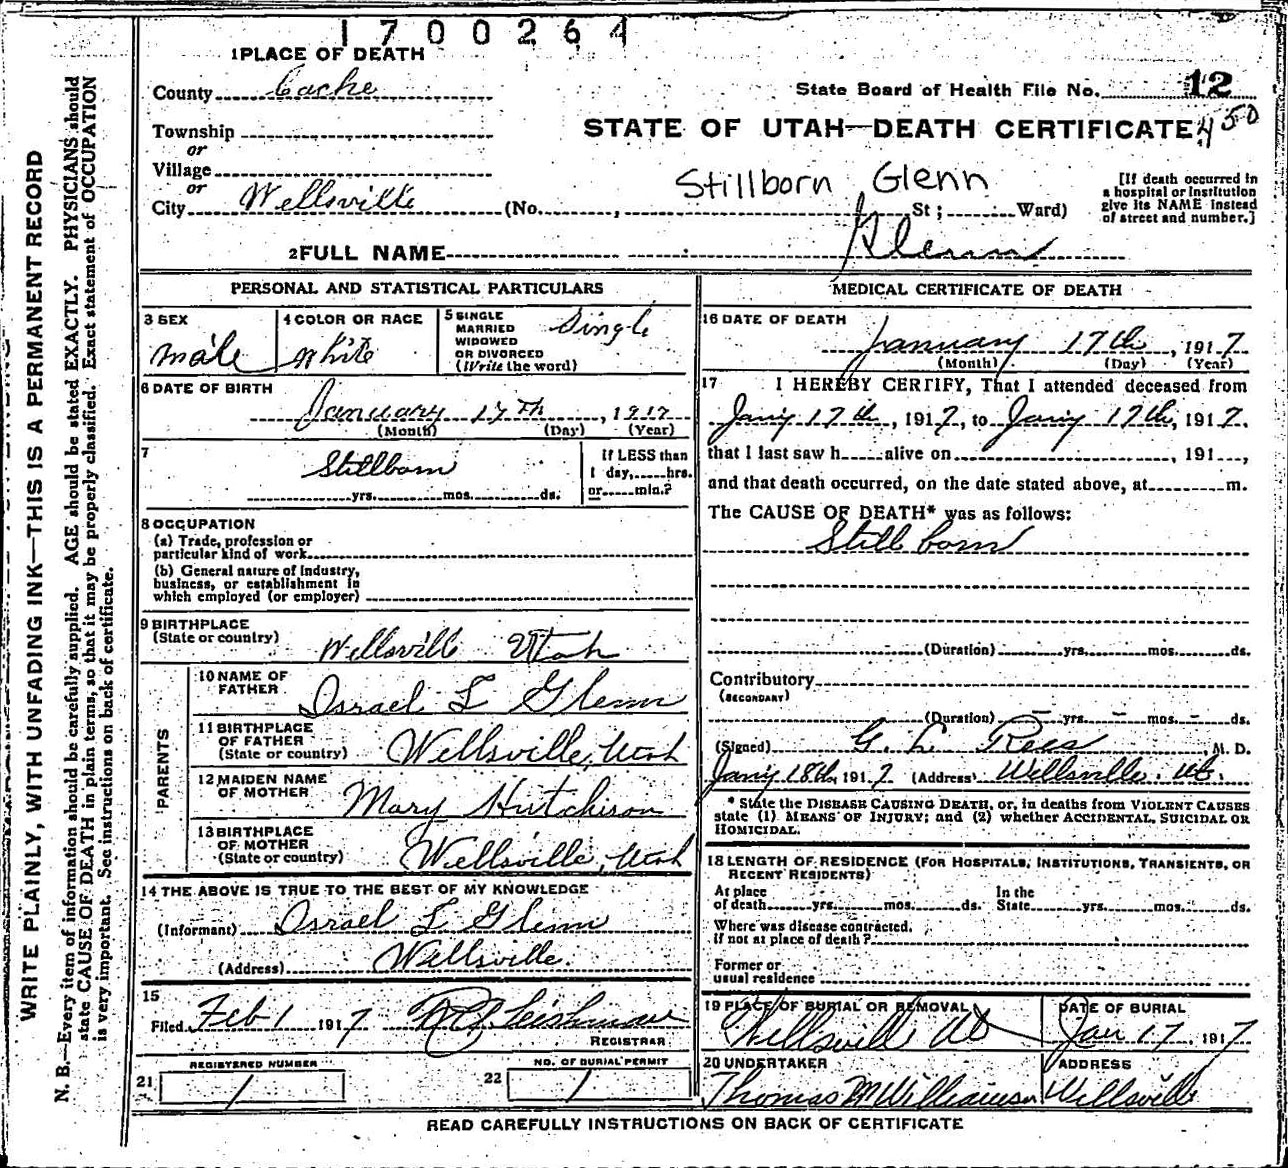 1700264
1 PLACE OF DEATH
County Cache
State Board of Health File No. 12
Township
or
STATE OF UTAH—DEATH CERTIFICATE 450
Village
or
Stillborn Glenn
City Wellsville (No. , St; Ward)
[If death occurred in
a hospital or institution
give its NAME instead
of street and number.]
2 FULL NAME Glenn
PERSONAL AND STATISTICAL PARTICULARS
3 SEX
male
4 COLOR OR RACE
White
5 SINGLE
MARRIED
WIDOWED
OR DIVORCED
(Write the word)
Single
6 DATE OF BIRTH
January 17th, 1917
(Month) (Day) (Year)
7
Stillborn
yrs. mos. ds.
If LESS than
1 day, hrs.
or min.?
8 OCCUPATION
(a) Trade, profession or
particular kind of work
(b) General nature of industry,
business, or establishment in
which employed (or employer)
9 BIRTHPLACE
(State or country) Wellsville Utah
PARENTS
10 NAME OF
FATHER Israel L Glenn
11 BIRTHPLACE
OF FATHER
(State or country) Wellsville, Utah
12 MAIDEN NAME
OF MOTHER Mary Hutchison
13 BIRTHPLACE
OF MOTHER
(State or country) Wellsville, Utah
14 THE ABOVE IS TRUE TO THE BEST OF MY KNOWLEDGE
(Informant) Israel L Glenn
(Address) Wellsville.
15
Filed Feb 1 1917 Leishman
REGISTRAR
REGISTERED NUMBER
21 1
NO. OF BURIAL PERMIT
22 1
MEDICAL CERTIFICATE OF DEATH
16 DATE OF DEATH
January 17th, 1917
(Month) (Day) (Year)
17 I HEREBY CERTIFY, That I attended deceased from
Jany 17th, 1917, to Jany 17th, 1917.
that I last saw h alive on , 191 ,
and that death occurred, on the date stated above, at m.
The CAUSE OF DEATH* was as follows:
Still born
(Duration) yrs. mos. ds.
Contributory
(SECONDARY)
(Duration) – yrs. – mos. – ds.
(Signed) G. L Rees, M. D.
Jany 18th, 1917 (Address) Wellsville. Ut.
* State the DISEASE CAUSING DEATH, or, in deaths from VIOLENT CAUSES
state (1) MEANS OF INJURY; and (2) whether ACCIDENTAL, SUICIDAL OR
HOMICIDAL.
18 LENGTH OF RESIDENCE (FOR HOSPITALS, INSTITUTIONS, TRANSIENTS, OR
RECENT RESIDENTS)
At place
of death yrs. mos. ds.
In the
State yrs. mos. ds.
Where was disease contracted,
if not at place of death?
Former or
usual residence
19 PLACE OF BURIAL OR REMOVAL
Wellsville Ut
DATE OF BURIAL
Jan 17, 1917
20 UNDERTAKER
Thomas M Williamson
ADDRESS
Wellsville
READ CAREFULLY INSTRUCTIONS ON BACK OF CERTIFICATE
WRITE PLAINLY, WITH UNFADING INK—THIS IS A PERMANENT RECORD
N. B.—Every item of information should be carefully supplied. AGE should be stated EXACTLY. PHYSICIANS should
state CAUSE OF DEATH in plain terms, so that it may be properly classified. Exact statement of OCCUPATION
is very important. See instructions on back of certificate.